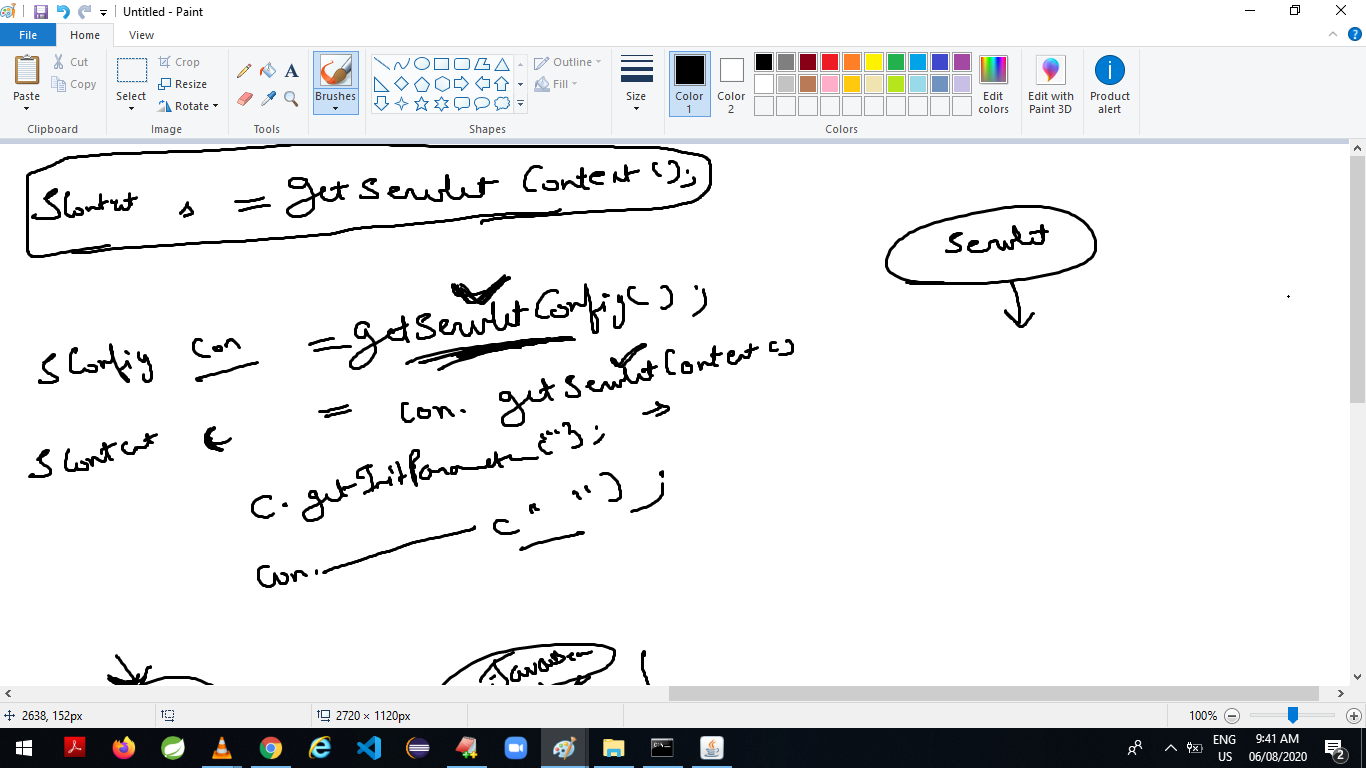 Untitled - Paint
File Home View
Paste Cut Copy Clipboard
Select Crop Resize Rotate Image
Tools
Brushes
Shapes Outline Fill
Size
Color 1 Color 2 Colors
Edit colors
Edit with Paint 3D
Product alert
SContext s = getServlet Context();
Servlet
SConfig con = getServletConfig();
SContext c = con. getServletContext()
c. getInitParameter("");
con. (" ");
JavaBean
2638, 152px
2720 × 1120px
100%
ENG US
9:41 AM
06/08/2020
2